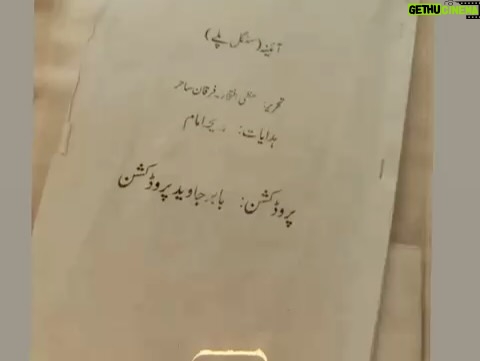 GETHUCINEMA
آئینہ (سنگل پلے)
تحریر: فرقان ساحر
ہدایات: امام
پروڈکشن: بابر جاوید پروڈکشن